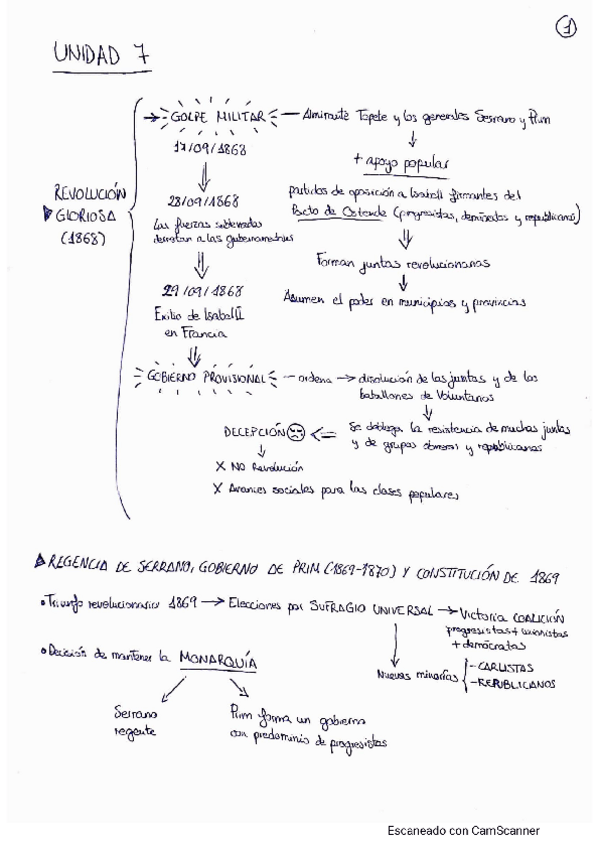 1
UNIDAD 7
REVOLUCIÓN
GLORIOSA
(1868)
→ GOLPE MILITAR — Almirante Topete y los generales Serrano y Prim
17/09/1868
+ apoyo popular
28/09/1868
Las fuerzas sublevadas
derrotan a las gubernamentales
partidos de oposición a Isabel II firmantes del
Pacto de Ostende (progresistas, demócratas y republicanos)
Forman juntas revolucionarias
29/09/1868
Exilio de Isabel II
en Francia
Asumen el poder en municipios y provincias
GOBIERNO PROVISIONAL — ordena → disolución de las juntas y de los
batallones de Voluntarios
DECEPCIÓN ⇐ Se doblega la resistencia de muchas juntas
y de grupos obreros y republicanos
X NO Revolución
X Avances sociales para las clases populares
REGENCIA DE SERRANO, GOBIERNO DE PRIM (1869-1870) Y CONSTITUCIÓN DE 1869
• Triunfo revolucionario 1869 → Elecciones por SUFRAGIO UNIVERSAL → Victoria COALICIÓN
progresistas + unionistas
+ demócratas
• Decisión de mantener la MONARQUÍA
Nuevas minorías
- CARLISTAS
- REPUBLICANOS
Serrano
regente
Prim forma un gobierno
con predominio de progresistas
Escaneado con CamScanner